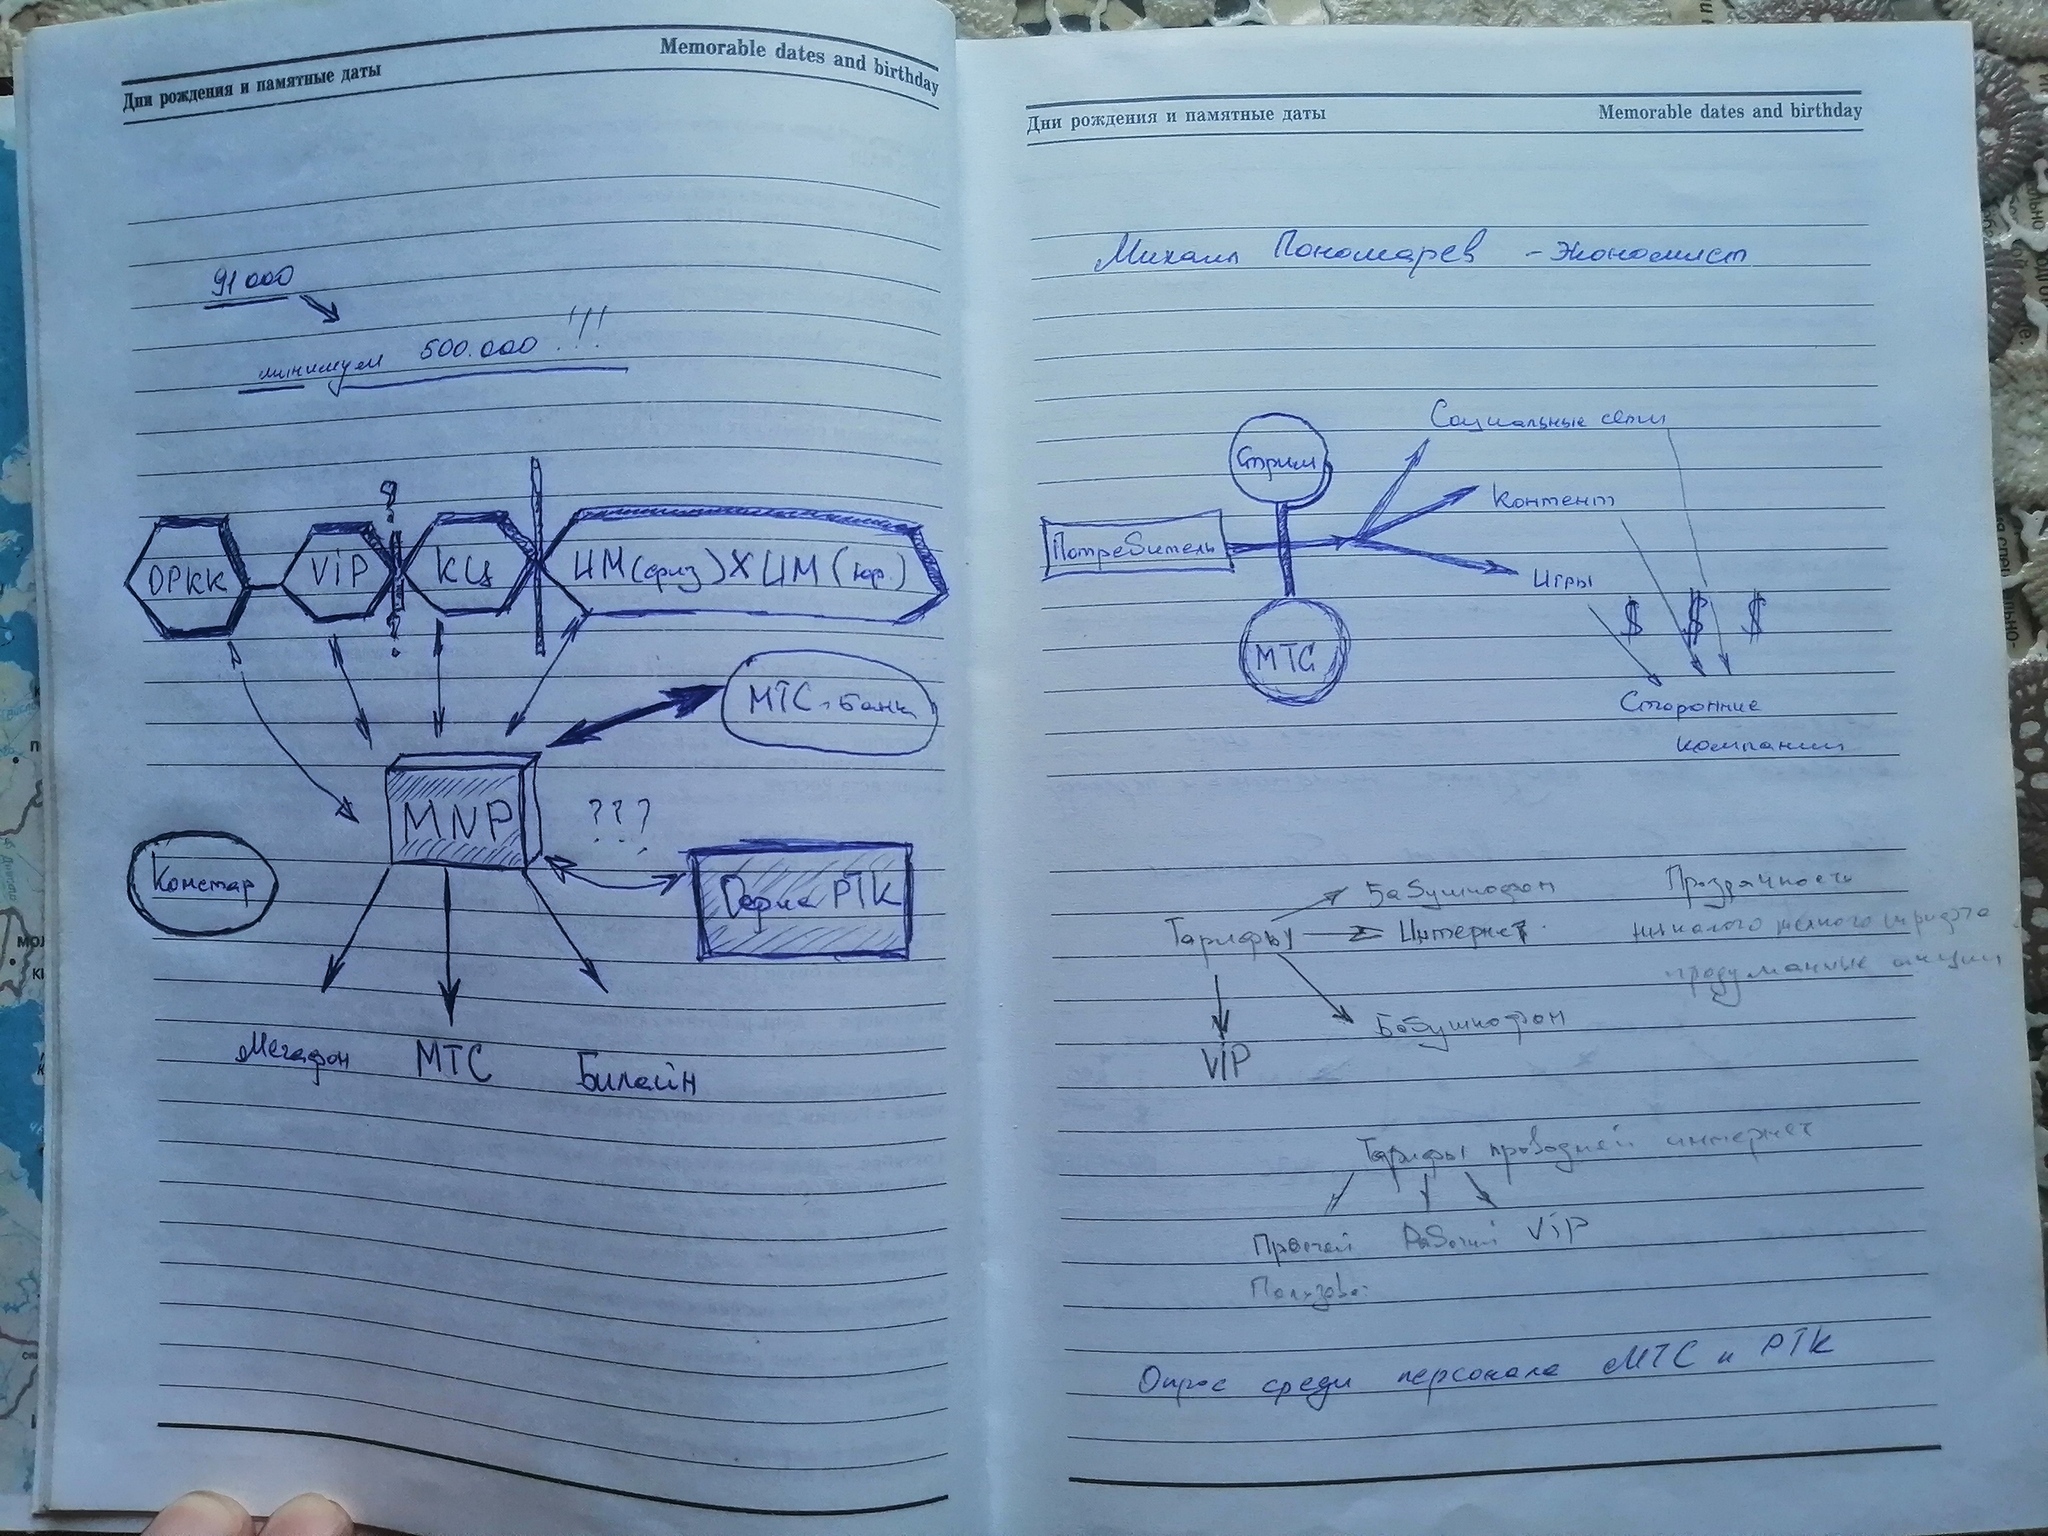 Дни рождения и памятные даты
Memorable dates and birthday
91000
минимум 500.000!!!
ОРКК
ViP
КЦ
ИМ(физ)ХИМ(юр.)
МТС-Банк
MNP
???
Констар
РТК
Мегафон
МТС
Билайн
Дни рождения и памятные даты
Memorable dates and birthday
Михаил Пономарев - экономист
Стрим
Социальные сети
Контент
Потребитель
Игры
$ $ $
МТС
Сторонние
компании
Бабушкофон
Прозрачность
Тарифы
Интернет
никакого мелкого шрифта
продуманные акции
Бабушкофон
ViP
Тарифы проводней интернет
Простой
Рабочий
ViP
Пользова
Опрос среди персонала МТС и РТК